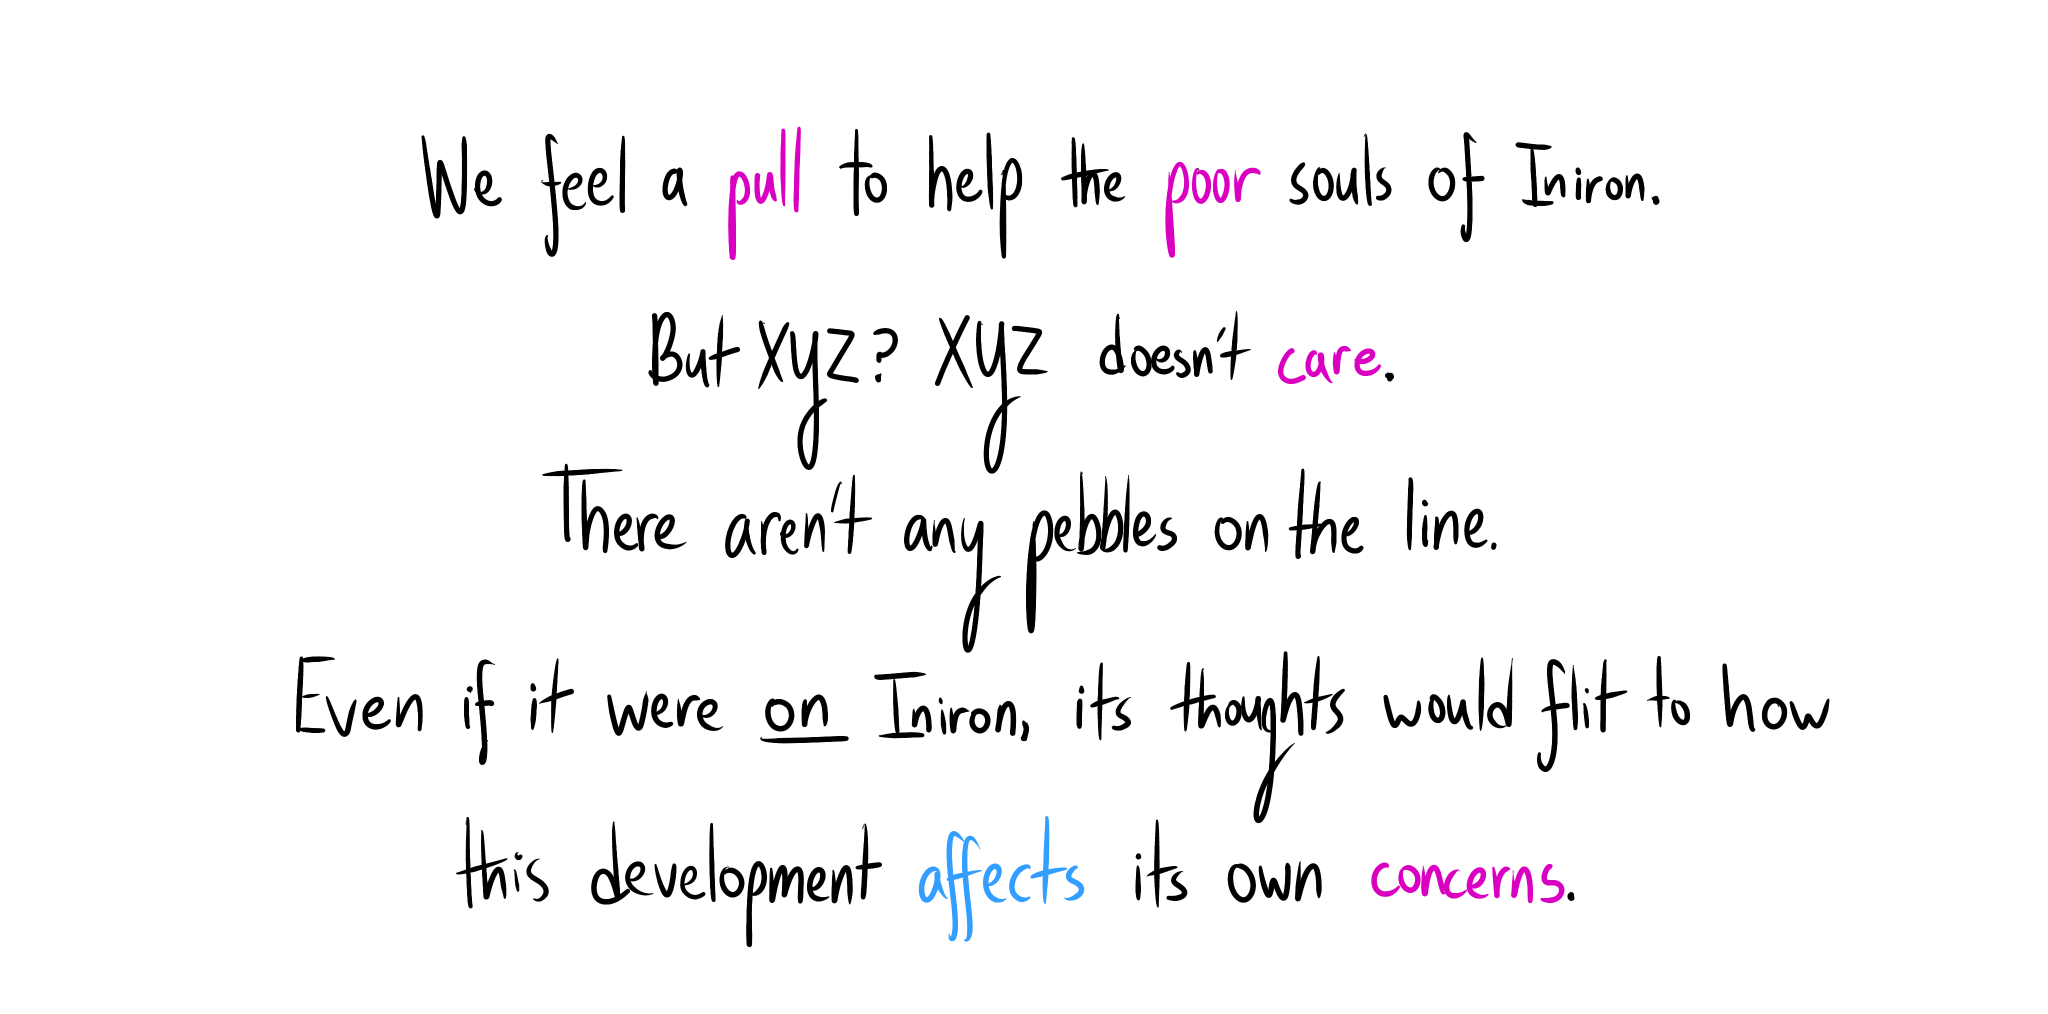 We feel a pull to help the poor souls of Iniron.
But Xyz? Xyz doesn't care.
There aren't any pebbles on the line.
Even if it were on Iniron, its thoughts would flit to how
this development affects its own concerns.